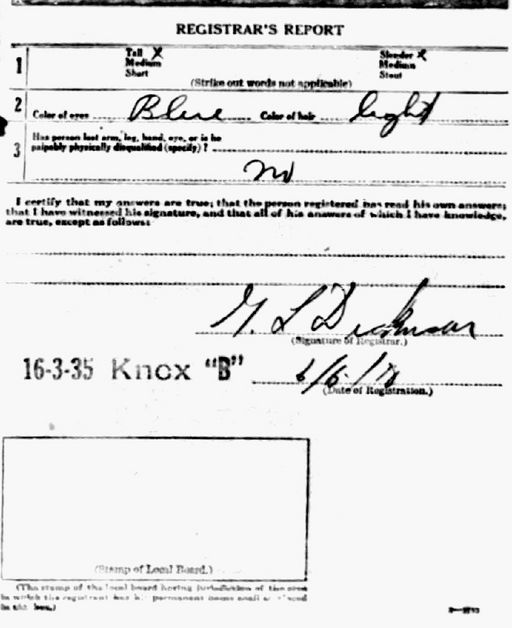 REGISTRAR'S REPORT
1 Tall X Slender X
Medium Medium
Short Stout
(Strike out words not applicable)
2 Color of eyes Blue Color of hair light
Has person lost arm, leg, hand, eye, or is he
3 palpably physically disqualified (specify)?
No
I certify that my answers are true; that the person registered has read his own answers;
that I have witnessed his signature, and that all of his answers of which I have knowledge,
are true, except as follows:
L
(Signature of Registrar.)
16-3-35 Knox "B"
(Date of Registration.)
(Stamp of Local Board.)
(The stamp of the local board having jurisdiction of the area
in which the registrant has his permanent home shall be placed
in this box.)